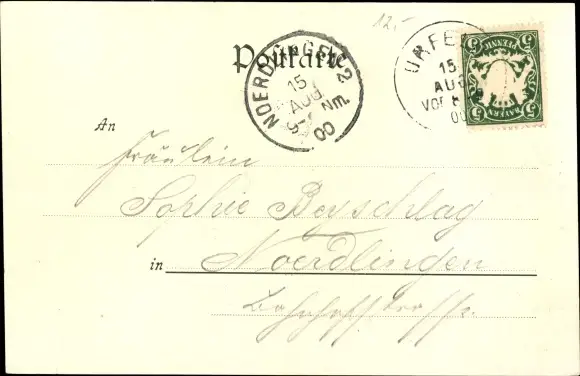 12.-
Postkarte
NOERDLINGEN 2
15
AUG.
5-6 Nm.
00
URFE
15
AUG
VOR
00
5 PFENNIG 5
5 BAYERN 5
An
Fräulein
Sophie Beyschlag
in Noerdlingen
Bahnhofstrasse.